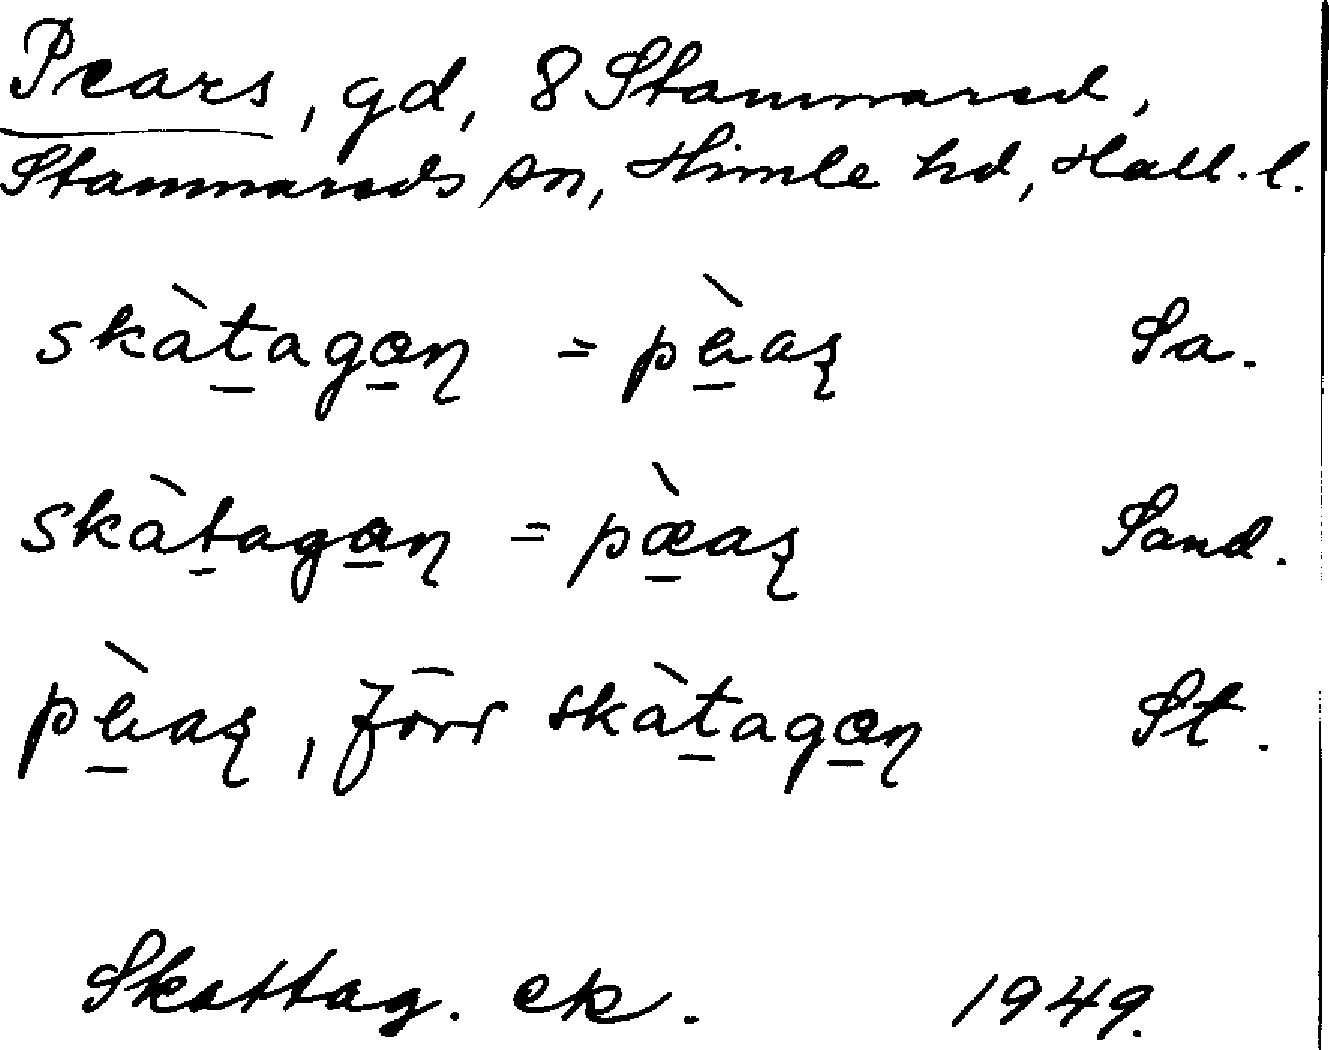 Pears, gd, 8 Stammared,
Stammareds sn, Himle hd, Hall. l.
skàt̠ago̠ꞃ = pè̠aʂ Sa.
skàt̠aga̠ꞃ = pæ̠̀aʂ Sand.
pè̠aʂ, förr skàt̠ago̠ꞃ St.
Skattag. ek. 1949.